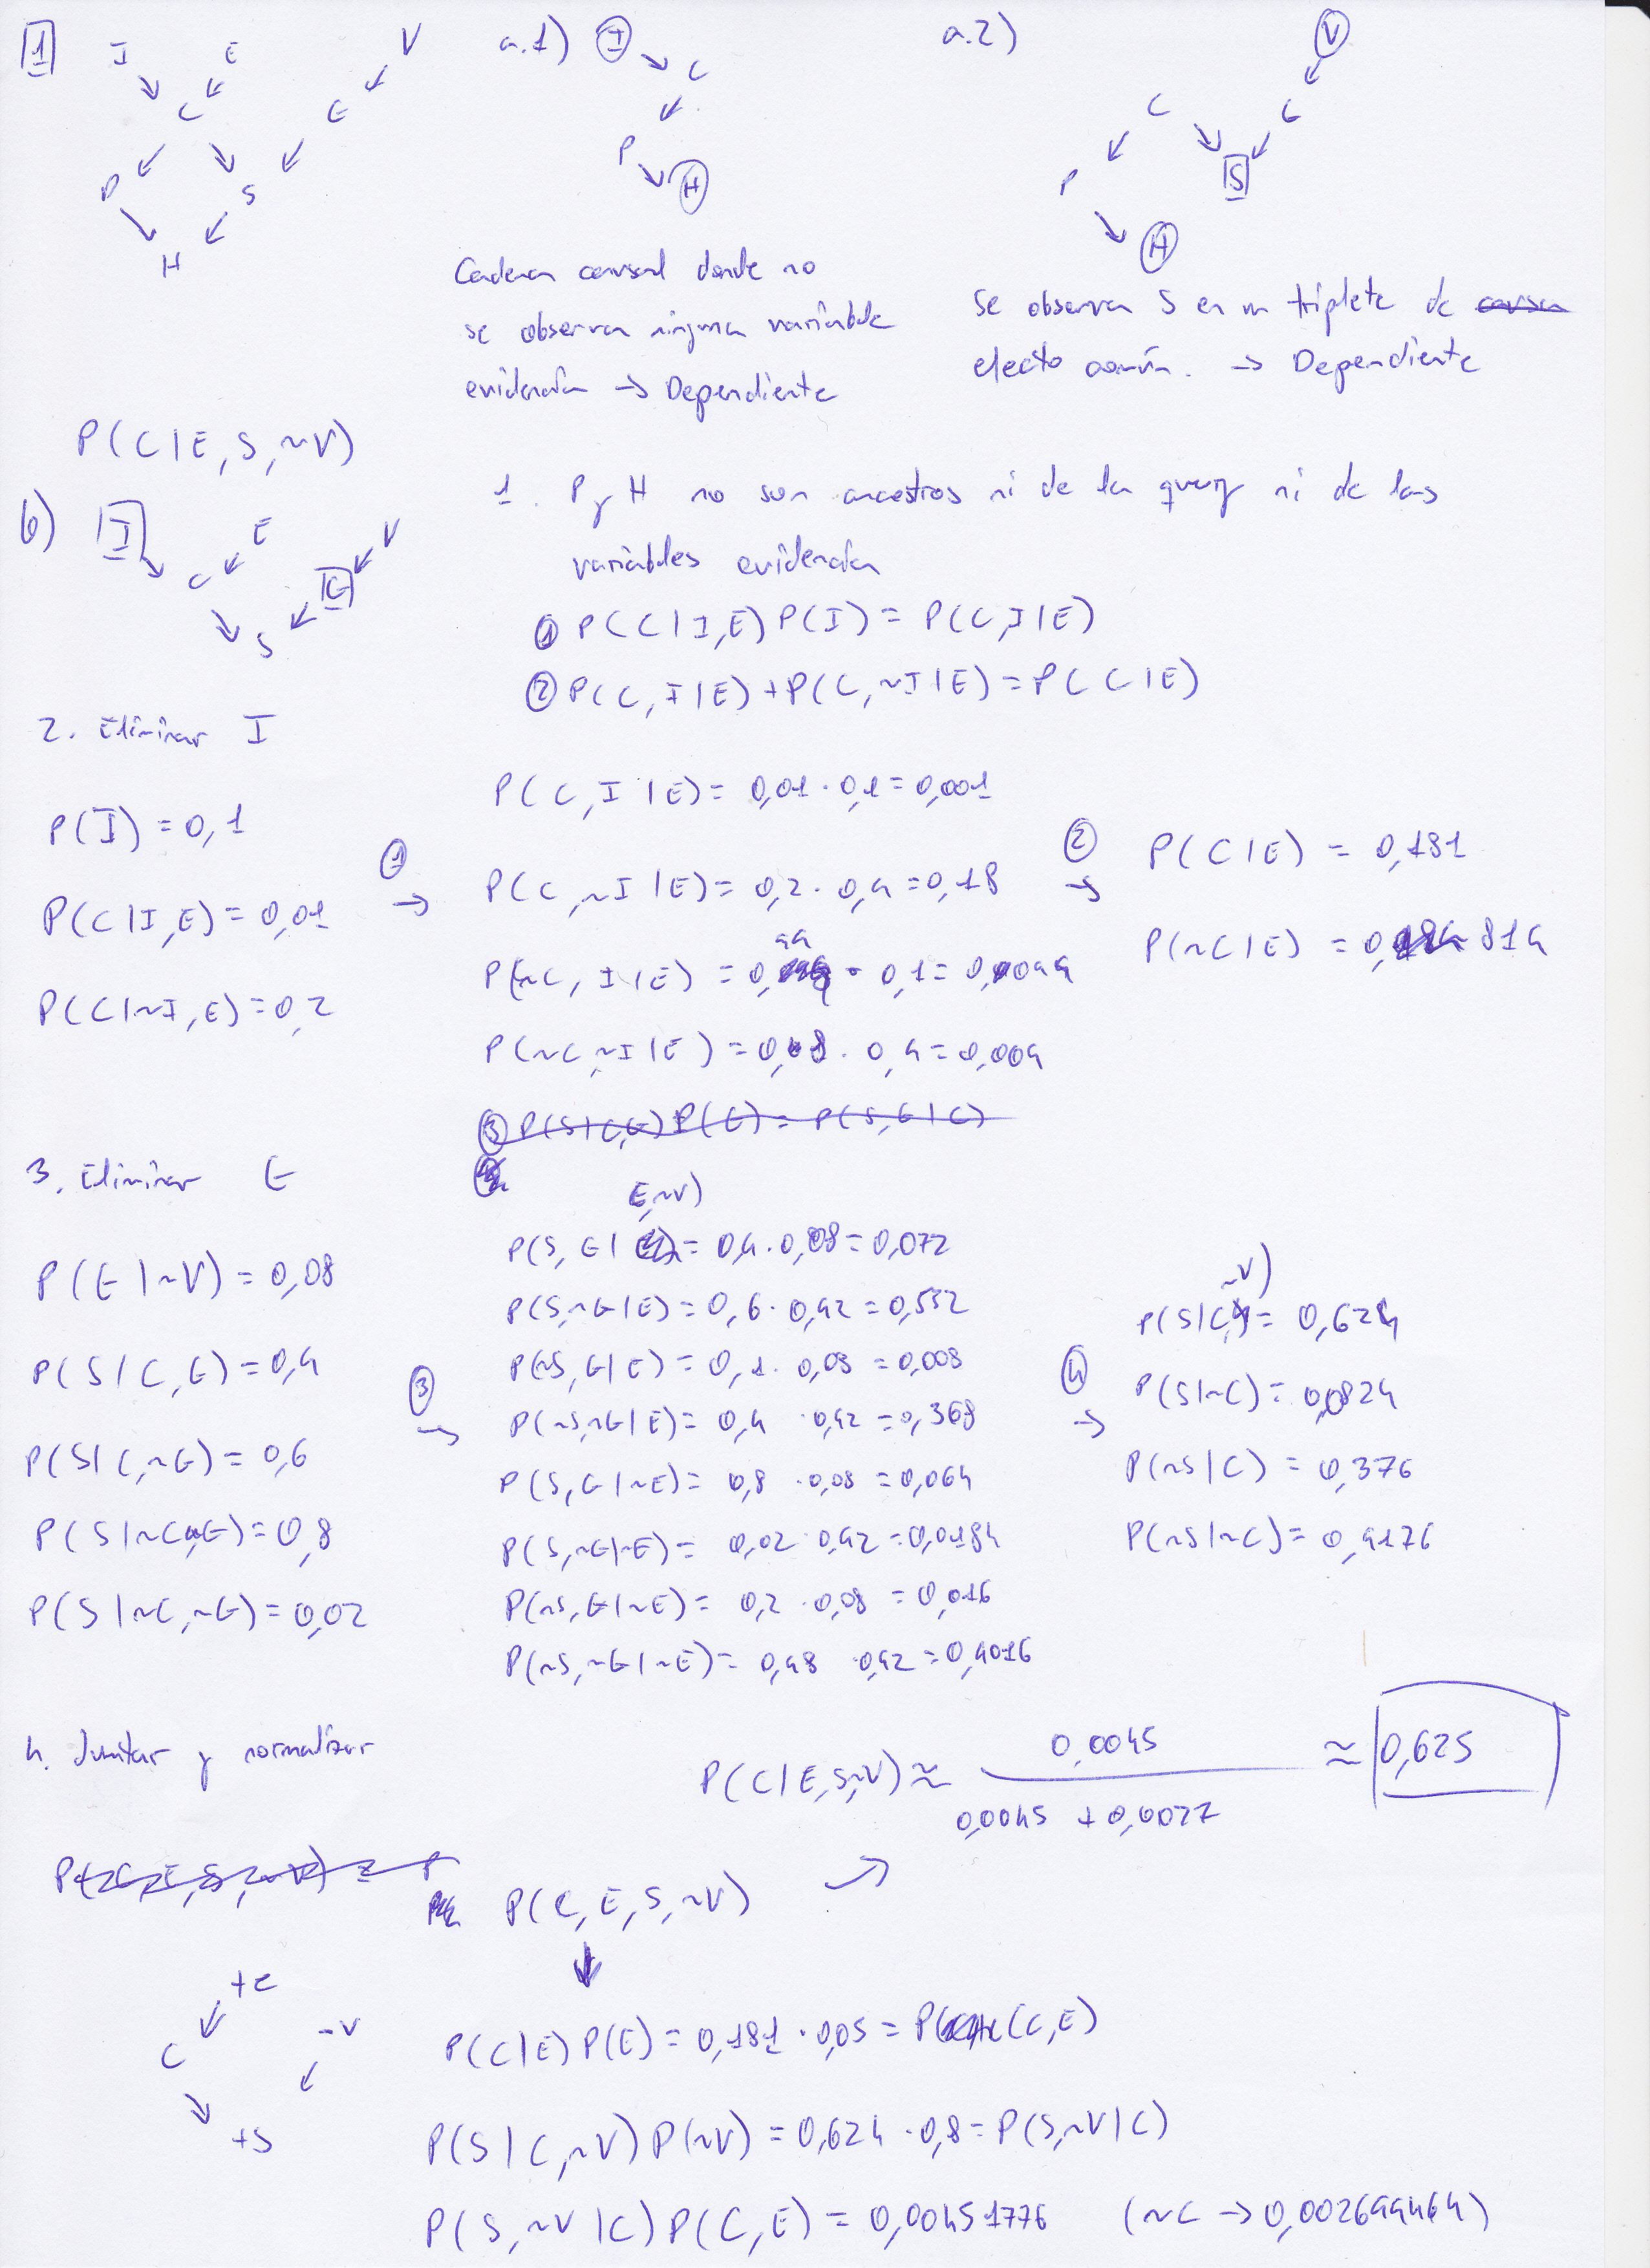 1
I E V
C G
P S
H
a.1) I
C
P
H
Cadena causal donde no
se observa ninguna variable
evidencia → Dependiente
a.2) V
C G
P S
H
Se observa S en un triplete de causa
efecto común. → Dependiente
P(C|E,S,~V)
b) I E V
C G
S
1. P y H no son ancestros ni de la query ni de las
variables evidencia
① P(C|I,E)P(I) = P(C,I|E)
② P(C,I|E)+P(C,~I|E)=P(C|E)
2. Eliminar I
P(I) = 0,1
P(C|I,E) = 0,01
P(C|~I,E)=0,2
① →
P(C,I|E) = 0,01 · 0,1=0,001
P(C,~I|E)= 0,2 · 0,9=0,18
P(~C,I|E) = 0,99 · 0,1= 0,099
P(~C,~I|E) = 0,8 · 0,9=0,009
② →
P(C|E) = 0,181
P(~C|E) = 0,819
③ P(S|C,G)P(G) = P(S,G|C)
3. Eliminar G
P(G|~V) = 0,08
P(S|C,G)=0,9
P(S|C,~G) = 0,6
P(S|~C,G)=0,8
P(S|~C,~G)=0,02
③ →
E,~V)
P(S,G| = 0,9·0,08=0,072
P(S,~G|E)=0,6·0,92=0,552
P(~S,G|E) = 0,1·0,08=0,008
P(~S,~G|E)= 0,4 ·0,92=0,368
P(S,G|~E)= 0,8 ·0,08=0,064
P(S,~G|~E)= 0,02·0,92=0,0184
P(~S,G|~E)= 0,2 ·0,08 = 0,016
P(~S,~G|~E)= 0,98 ·0,92=0,9016
④ →
~V)
P(S|C, = 0,624
P(S|~C)=0,0824
P(~S|C) = 0,376
P(~S|~C)= 0,9176
4. Juntar y normalizar
P(C|E,S,~V)≈ 0,0045
0,0045 + 0,0027
≈ 0,625
P(C,E,S,~V)
+e
C -v
+s
P(C|E)P(E)=0,181·0,05= P(C,E)
P(S|C,~V)P(~V) =0,624·0,8=P(S,~V|C)
P(S,~V|C)P(C,E) = 0,00451776 (~C→0,002699464)